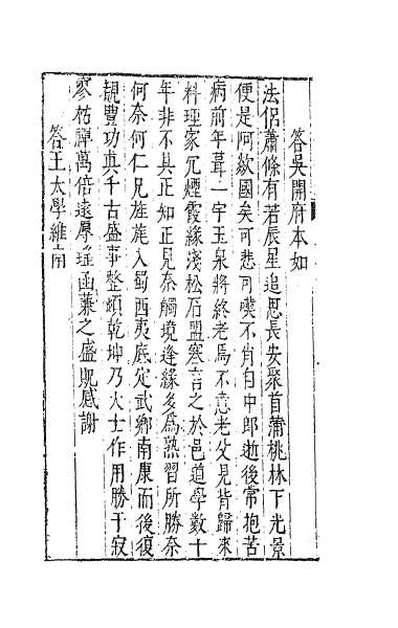 答吳開府本如
法侶蕭條有若辰星追思長安聚首蒲桃林下光景
便是阿歙國矣可悲可嘆不肖自中郎逝後常抱苦
病前年葺一宇玉泉將終老焉不意老父見背歸來
料理家冗煙霞緣淺松石盟寒言之於邑道學數十
年非不具正知正見奈觸境逢緣多為熟習所勝奈
何奈何仁兄旌旄入蜀西夷底定武鄉南康而後復
覩豐功真千古盛事整頓乾坤乃大士作用勝于寂
寥枯禪萬倍遠辱瑤函兼之盛貺感謝
答王太學維南